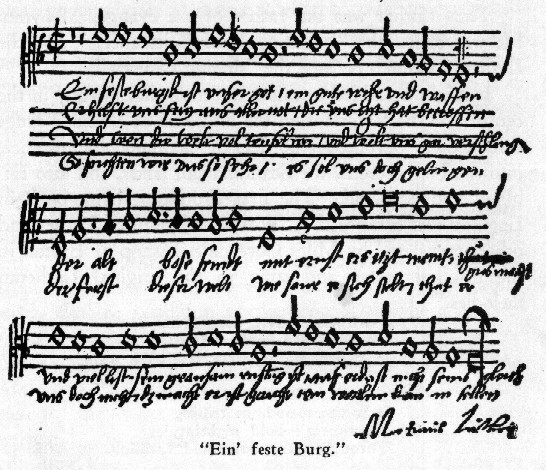 Ein feste burgk ist unser got / ein gute wehr und waffen
Er hilfft uns frey aus aller not / die uns itzt hat betroffen
Und wen die welt vol teuffel wer / und wolt uns gar verschlingen
So furchten wir uns so sehr / es sol uns doch gelingen
Der alt bose feindt mit ernst ers itzt meint gros macht
der furst dieser welt wie saur er sich stelt thut er
und viel list sein grausam rustung ist auf erd ist nicht seins gleich
uns doch nicht macht
Martinus Luther
“Ein' feste Burg.”